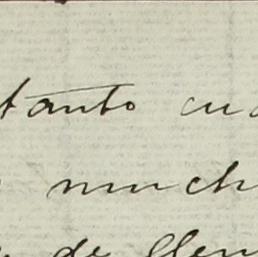 tanto cua
much
de llen